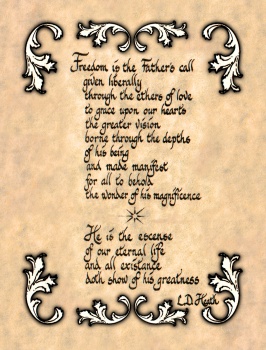 Freedom is the Father's call
given liberally
through the ethers of love
to grace upon our hearts
the greater vision
borne through the depths
of his being
and made manifest
for all to behold
the wonder of his magnificence
He is the escense
of our eternal life
and all existance
doth show of his greatness
L.D. Heath